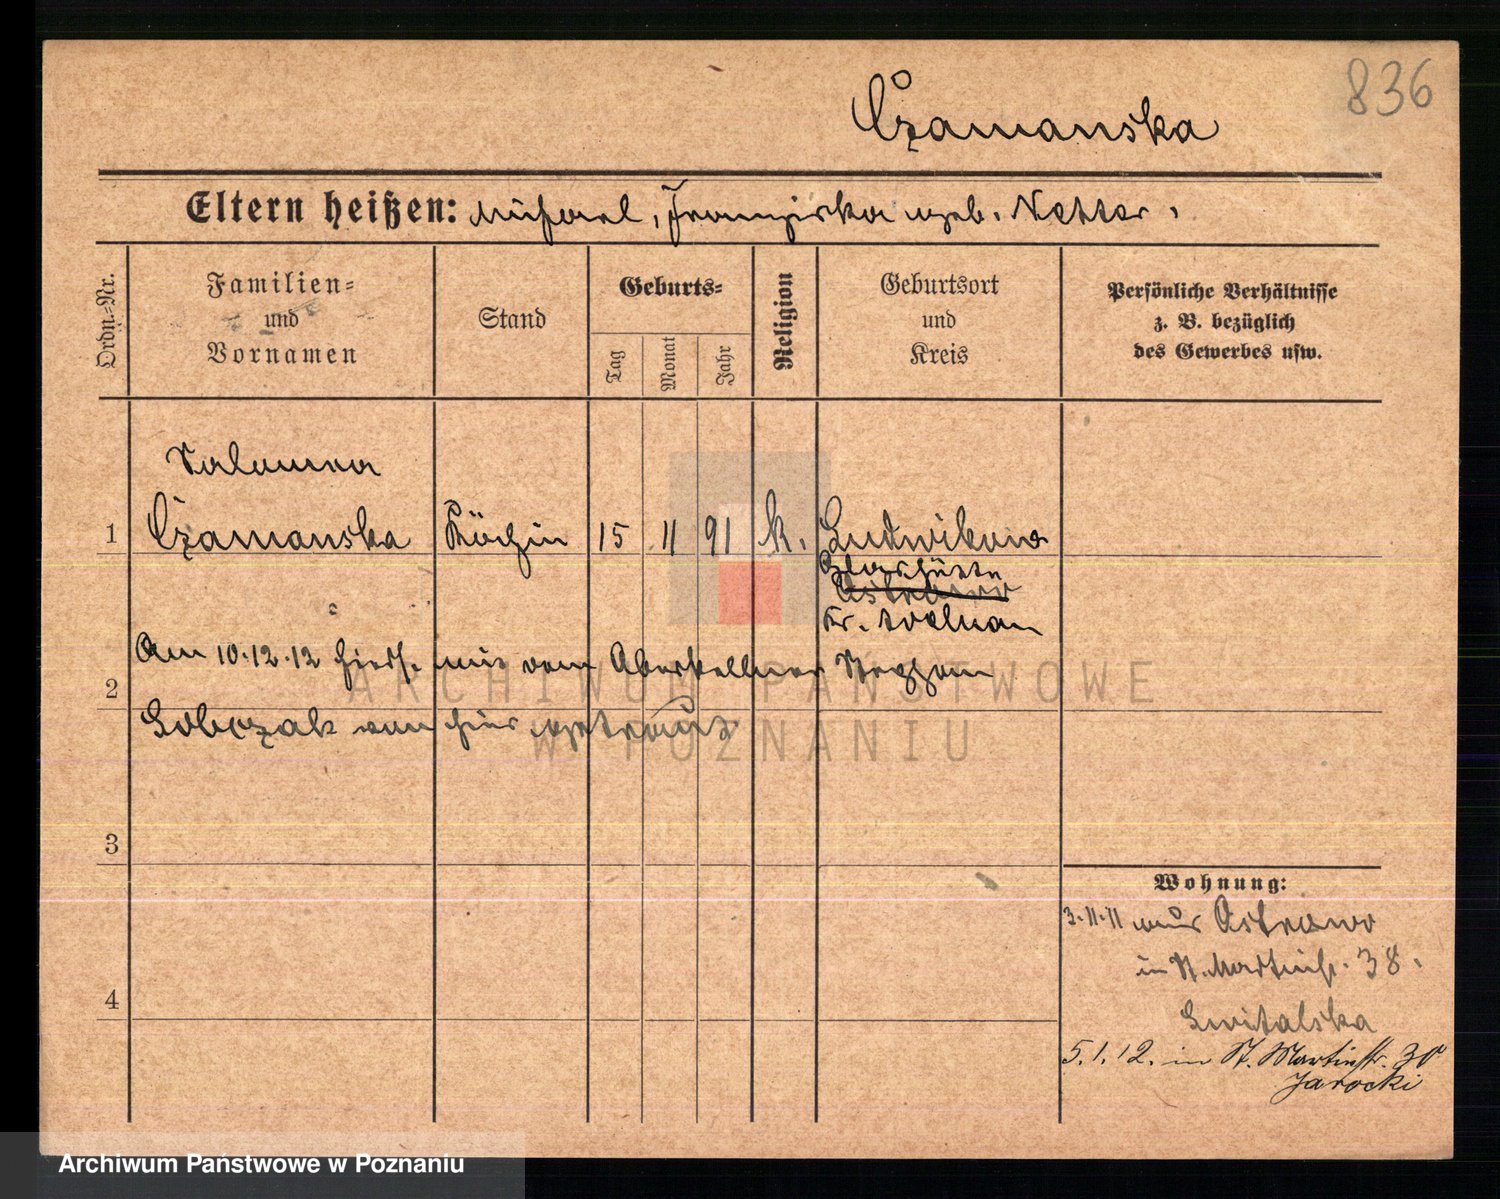 836
Czamanska
Eltern heißen: Michael, Franziska geb. Vetter.
Ordn.-Nr.
Familien-
und
Vornamen
Stand
Geburts-
Tag
Monat
Jahr
Religion
Geburtsort
und
Kreis
Persönliche Verhältnisse
z. B. bezüglich
des Gewerbes usw.
Czamanska
1
Köchin
15
11
91
k.
Ludwikowo
Glashütte
Ostrowo
Kr.
Am 10.12.12 hiers. mit dem Oberkellner
2
von hier getraut
3
4
Wohnung:
3.11.11 aus Ostrowo
in St. Martinstr. 38.
Switalska
5.1.12. in St. Martinstr. 30
Jarocki
ARCHIWUM PAŃSTWOWE
W POZNANIU
Archiwum Państwowe w Poznaniu